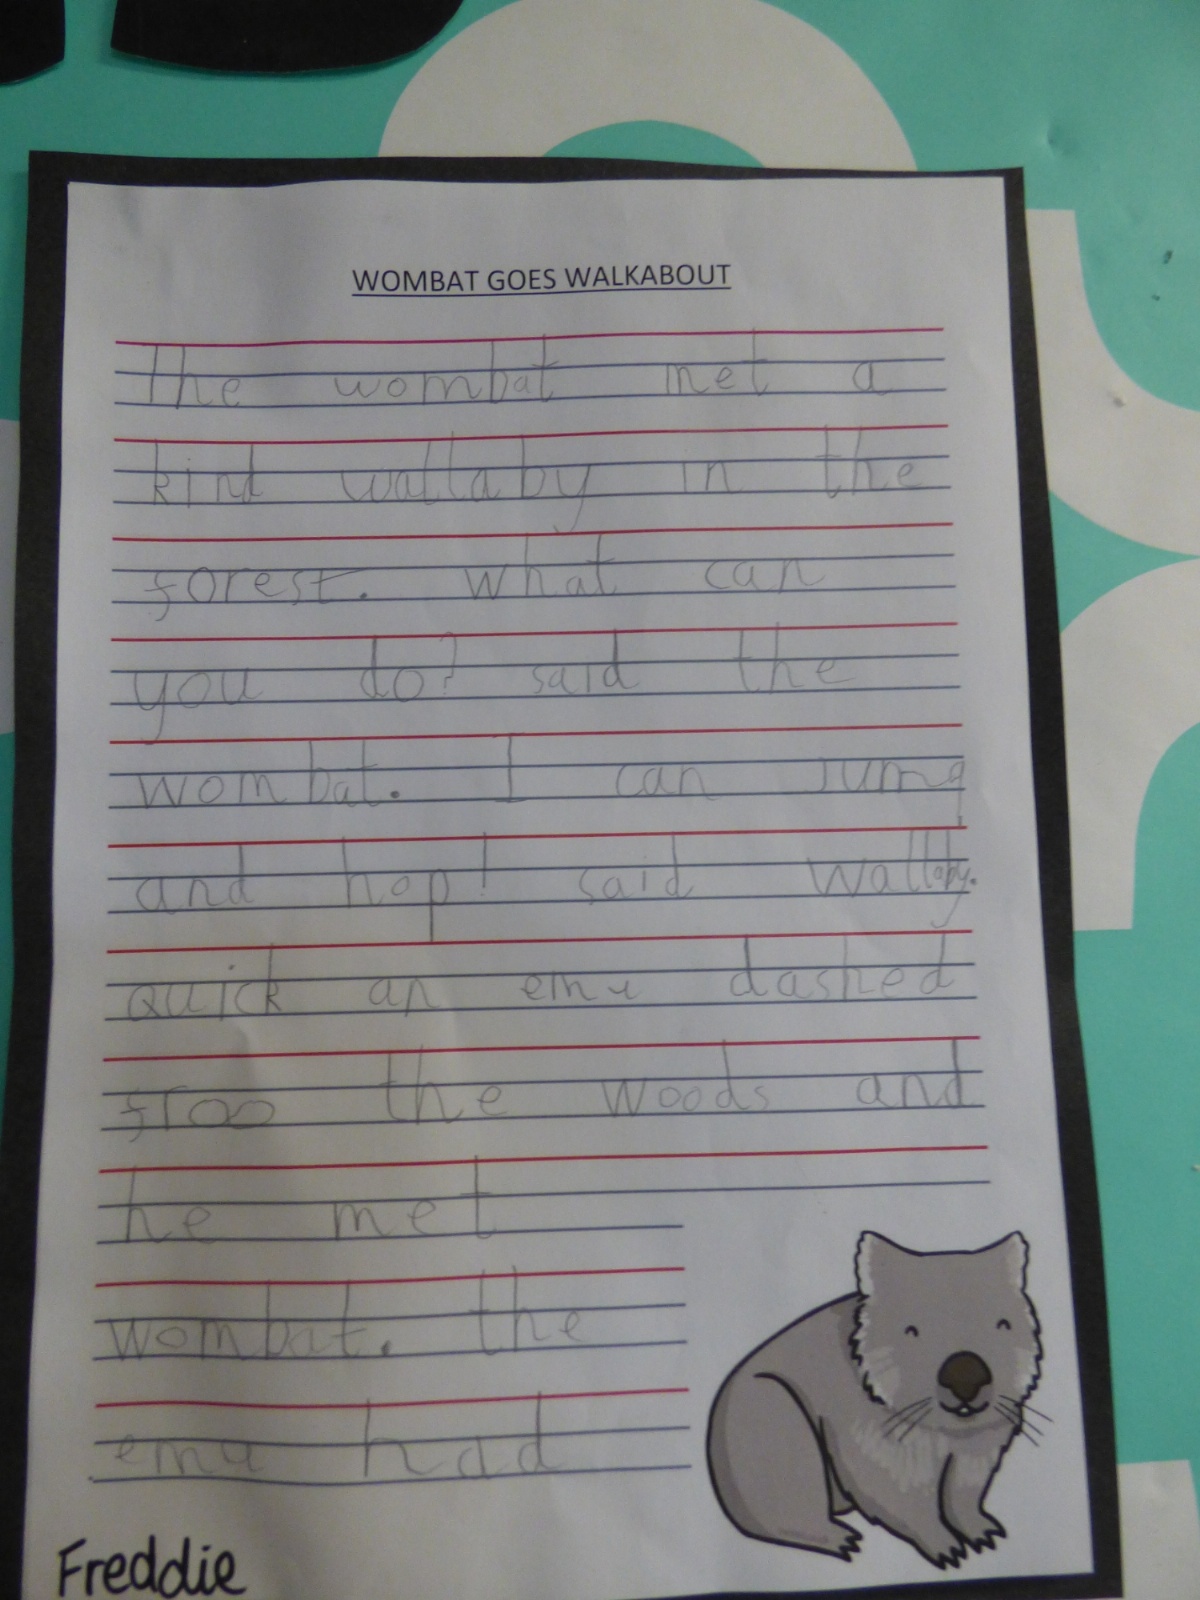 WOMBAT GOES WALKABOUT
The wombat met a
kind wallaby in the
forest. What can
you do? said the
wombat. I can jump
and hop! said wallaby.
quick an emu dashed
froo the woods and
he met
wombat. the
emu had
Freddie